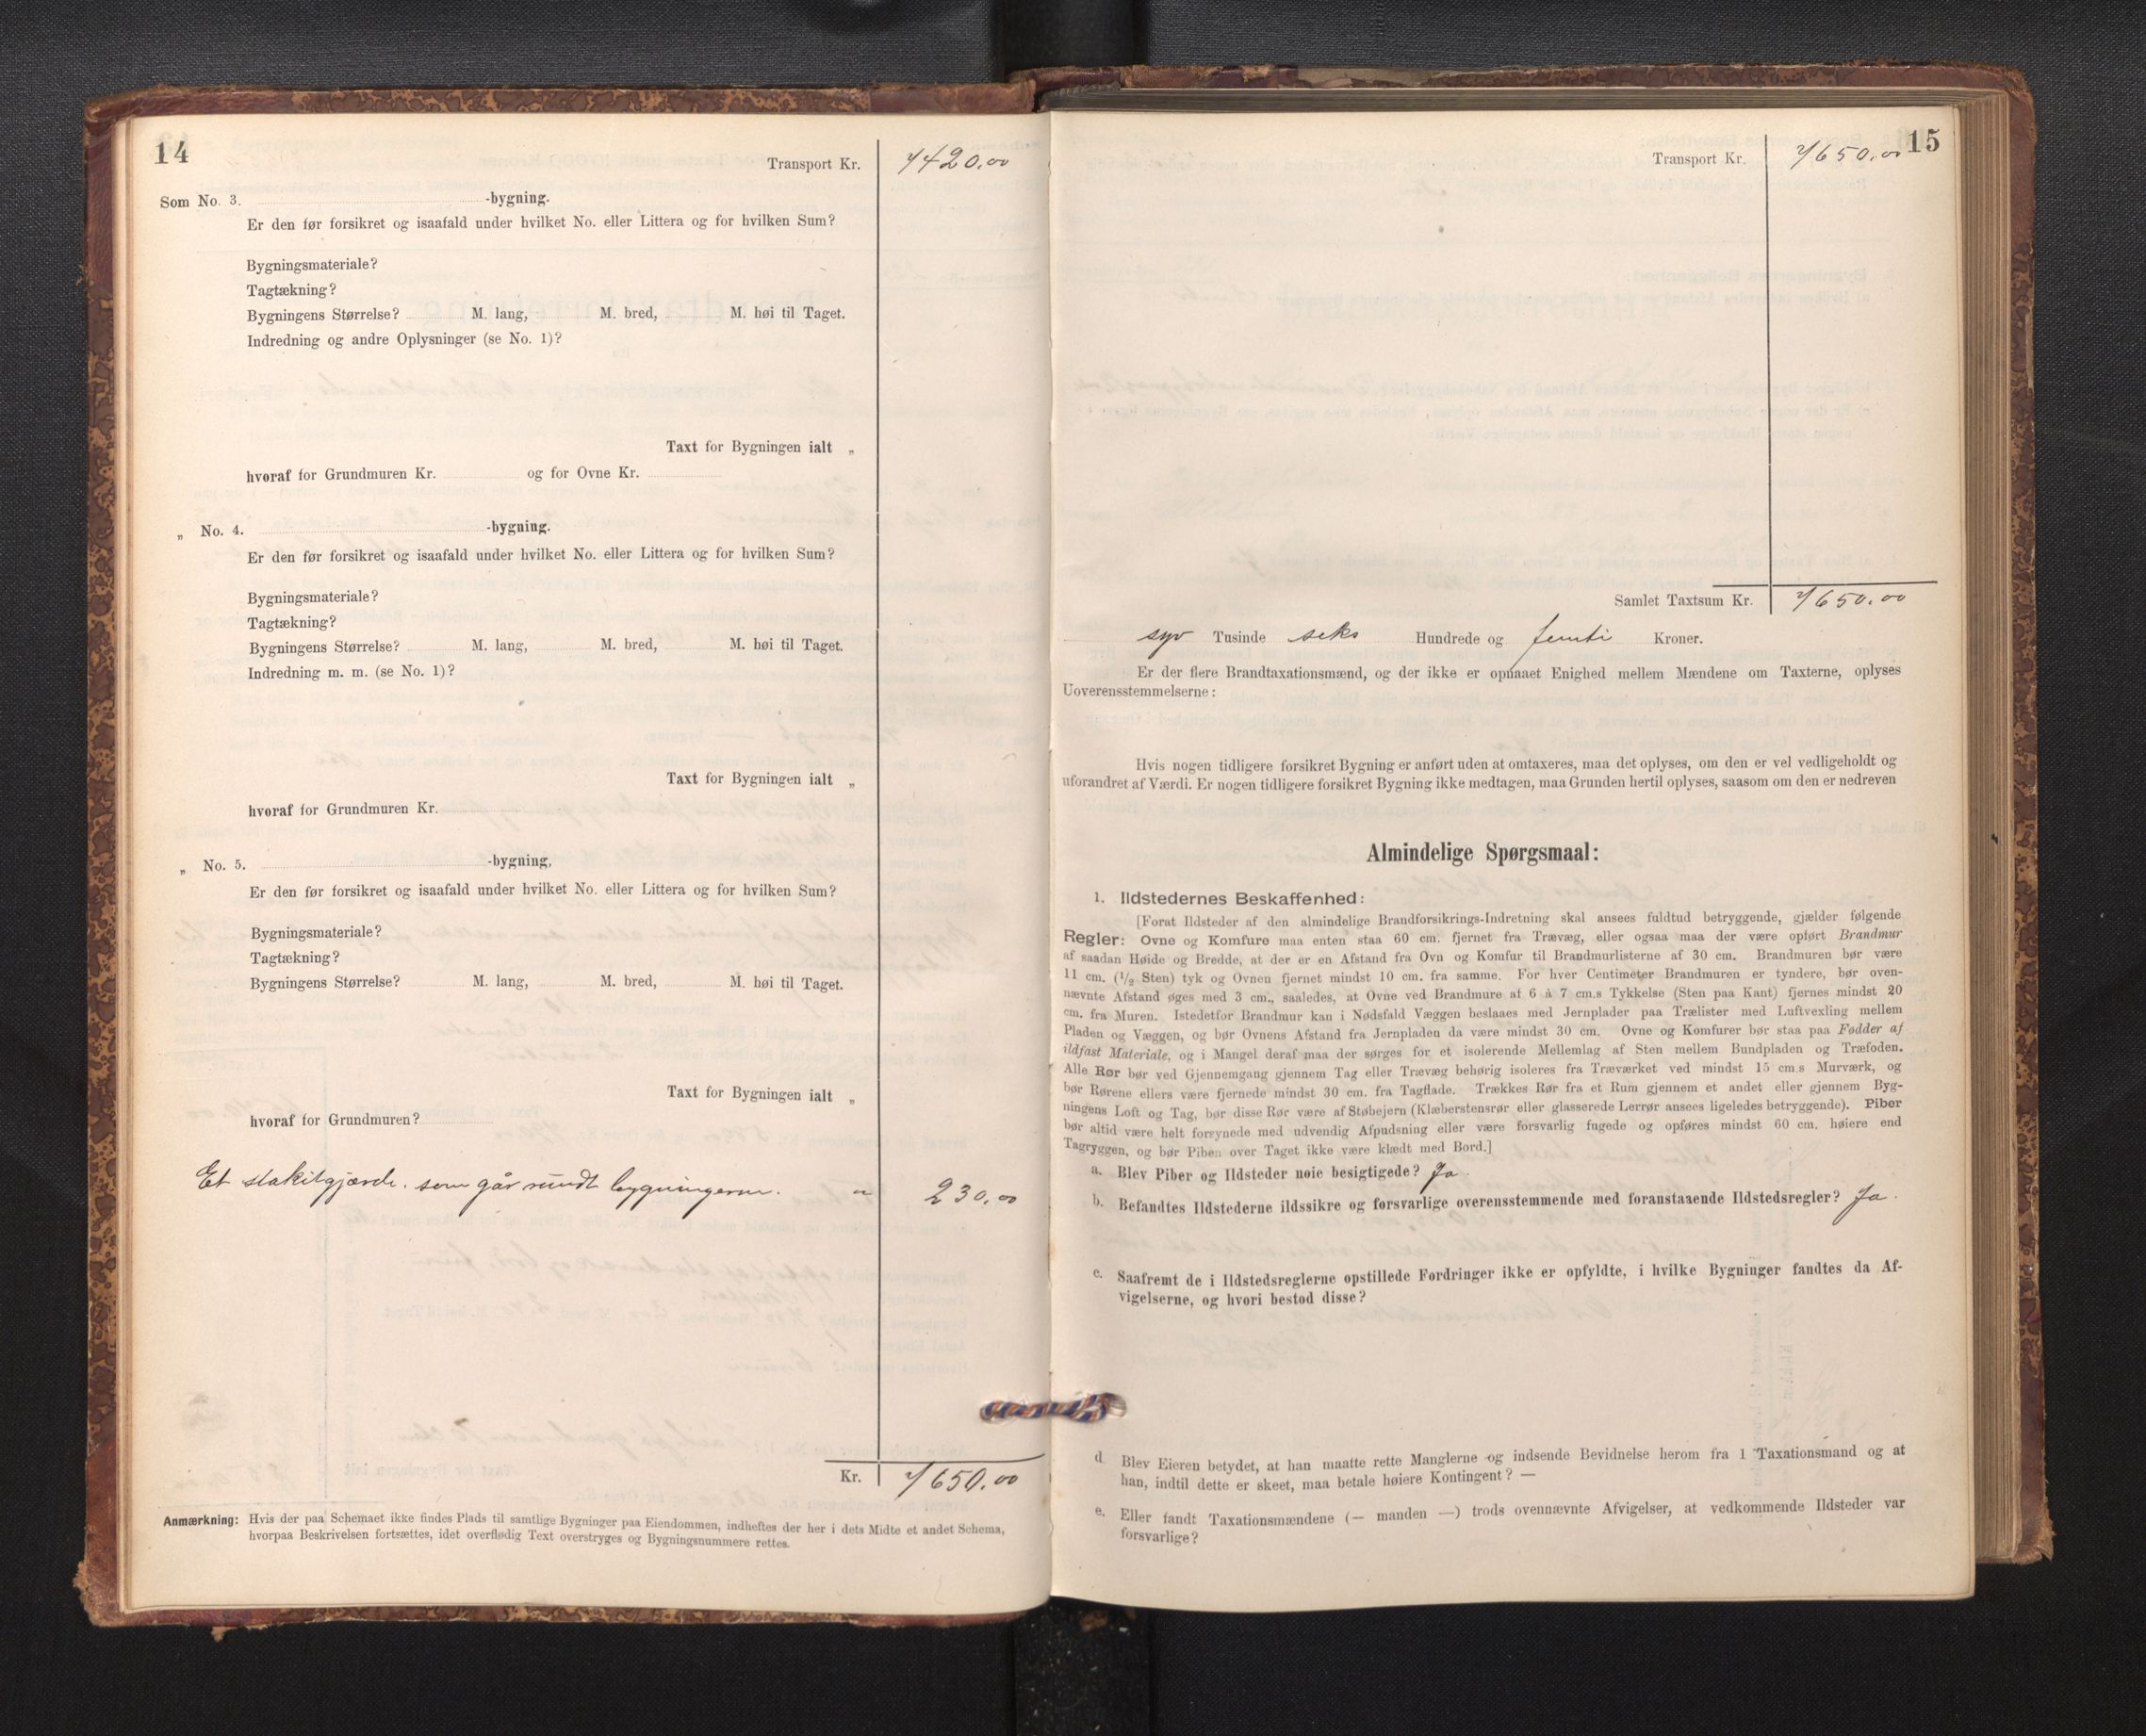 14
Transport Kr. 7420,00
Som No. 3. -bygning.
Er den før forsikret og isaafald under hvilket No. eller Littera og for hvilken Sum?
Bygningsmateriale?
Tagtækning?
Bygningens Størrelse? M. lang, M. bred, M. høi til Taget.
Indredning og andre Oplysninger (se No. 1)?
Taxt for Bygningen ialt „
hvoraf for Grundmuren Kr. og for Ovne Kr.
„ No. 4. -bygning.
Er den før forsikret og isaafald under hvilket No. eller Littera og for hvilken Sum?
Bygningsmateriale?
Tagtækning?
Bygningens Størrelse? M. lang, M. bred, M. høi til Taget.
Indredning m. m. (se No. 1)?
Taxt for Bygningen ialt „
hvoraf for Grundmuren Kr.
„ No. 5. -bygning,
Er den før forsikret og isaafald under hvilket No. eller Littera og for hvilken Sum?
Bygningsmateriale?
Tagtækning?
Bygningens Størrelse? M. lang, M. bred, M. høi til Taget.
Taxt for Bygningen ialt „
hvoraf for Grundmuren?
Et stakitgjærde. som går rundt bygningerne. „ 230,00
Kr. 7650,00
Anmærkning: Hvis der paa Schemaet ikke findes Plads til samtlige Bygninger paa Eiendommen, indheftes der her i dets Midte et andet Schema,
hvorpaa Beskrivelsen fortsættes, idet overflødig Text overstryges og Bygningsnummere rettes.
15
Transport Kr. 7650,00
Samlet Taxtsum Kr. 7650,00
syv Tusinde seks Hundrede og femti Kroner.
Er der flere Brandtaxationsmænd, og der ikke er opnaaet Enighed mellem Mændene om Taxterne, oplyses
Uoverensstemmelserne:
Hvis nogen tidligere forsikret Bygning er anført uden at omtaxeres, maa det oplyses, om den er vel vedligeholdt og
uforandret af Værdi. Er nogen tidligere forsikret Bygning ikke medtagen, maa Grunden hertil oplyses, saasom om den er nedreven
Almindelige Spørgsmaal:
1. Ildstedernes Beskaffenhed:
[Forat Ildsteder af den almindelige Brandforsikrings-Indretning skal ansees fuldtud betryggende, gjælder følgende
Regler: Ovne og Komfure maa enten staa 60 cm. fjernet fra Trævæg, eller ogsaa maa der være opført Brandmur
af saadan Høide og Bredde, at der er en Afstand fra Ovn og Komfur til Brandmurlisterne af 30 cm. Brandmuren bør være
11 cm. (1/2 Sten) tyk og Ovnen fjernet mindst 10 cm. fra samme. For hver Centimeter Brandmuren er tyndere, bør oven-
nævnte Afstand øges med 3 cm., saaledes, at Ovne ved Brandmure af 6 à 7 cm.s Tykkelse (Sten paa Kant) fjernes mindst 20
cm. fra Muren. Istedetfor Brandmur kan i Nødsfald Væggen beslaaes med Jernplader paa Trælister med Luftvexling mellem
Pladen og Væggen, og bør Ovnens Afstand fra Jernpladen da være mindst 30 cm. Ovne og Komfurer bør staa paa Fødder af
ildfast Materiale, og i Mangel deraf maa der sørges for et isolerende Mellemlag af Sten mellem Bundpladen og Træfoden.
Alle Rør bør ved Gjennemgang gjennem Tag eller Trævæg behørig isoleres fra Træværket ved mindst 15 cm.s Murværk, og
bør Rørene ellers være fjernede mindst 30 cm. fra Tagflade. Trækkes Rør fra et Rum gjennem et andet eller gjennem Byg-
ningens Loft og Tag, bør disse Rør være af Støbejern (Klæberstensrør eller glasserede Lerrør ansees ligeledes betryggende). Piber
bør altid være helt forsynede med udvendig Afpudsning eller være forsvarlig fugede og opføres mindst 60 cm. høiere end
Tagryggen, og bør Piben over Taget ikke være klædt med Bord.]
a. Blev Piber og Ildsteder nøie besigtigede? Ja.
b. Befandtes Ildstederne ildssikre og forsvarlige overensstemmende med foranstaaende Ildstedsregler? Ja.
c. Saafremt de i Ildstedsreglerne opstillede Fordringer ikke er opfyldte, i hvilke Bygninger fandtes da Af-
vigelserne, og hvori bestod disse?
d Blev Eieren betydet, at han maatte rette Manglerne og indsende Bevidnelse herom fra 1 Taxationsmand og at
han, indtil dette er skeet, maa betale høiere Kontingent? —
e. Eller fandt Taxationsmændene (— manden —) trods ovennævnte Afvigelser, at vedkommende Ildsteder var
forsvarlige?